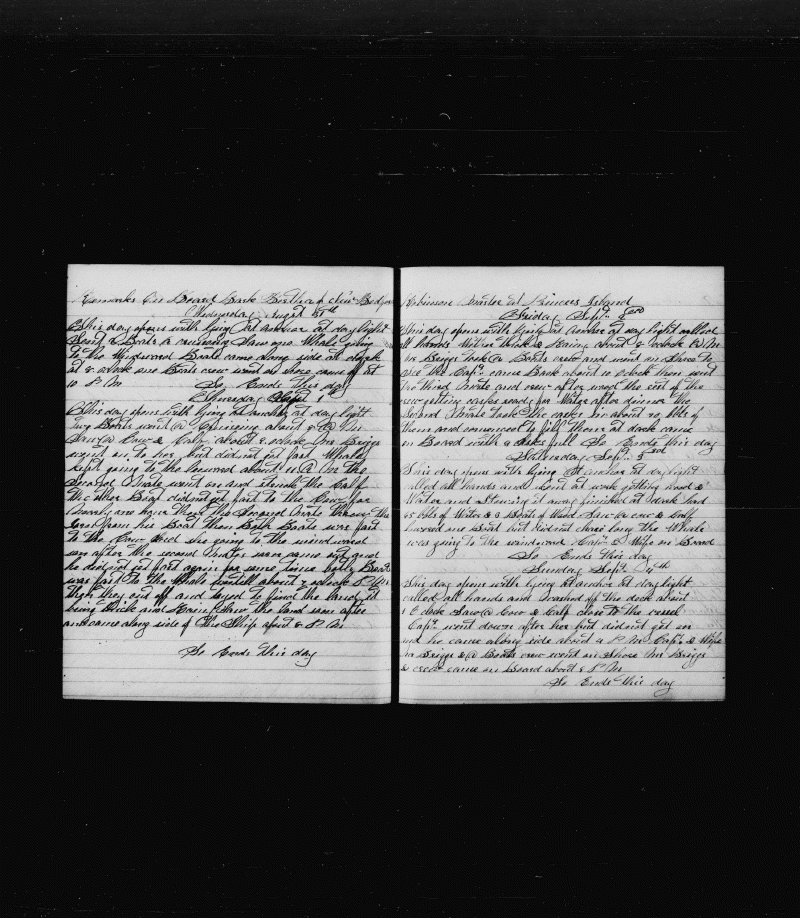 Remarks On Board Bark Bertha of New Bedford
Wednesday August 31th
This day opens with lying at anchor at day light
Sent 2 Boats a cruising Saw one Whale going
to the Windward Boats came along side at dark
at 8 oclock one Boats crew went on shore came off at
10 P M So Ends this day
Thursday Sept 1th
This day opens with lying at anchor at day light
Two Boats went a Cruising about 8 A M
Saw a Cow & Calf about 8 oclock Mr Briggs
went on to her but did not get fast Whale
kept going to the leeward about 11 A M the
Second Mate went on and struck the Calf
the other Boat did not get fast to the Cow for
nearly one hour then the Second Mate threw the
Iron from his Boat then Both Boats was fast
to the Cow and she going to the windward
soon after the second Mates iron came out and
he did not get fast again for some time both Boats
was fast to the Whale until about 2 oclock P M
then they cut off and tryed to find the land it
being Thick and Rainy Saw the land soon after
and came along side of the Ship about 8 P M
So Ends this day
Robinson Master at Princes Island
Friday Sept 2nd
This day opens with lying at anchor at day light called
all hands Weather thick & Rainy about 8 oclock A M
Mr Briggs took a Boats crew and went on Shore to
see the Capt came Back about 10 oclock then went
the third Mate and crew after wood the rest of the
crew getting casks ready for Water after dinner the
Second Mate took the casks in about 20 bbls of
them and commenced to fill them at dark came
on Board with 9 casks full So Ends this day
Saturday Sept 3rd
This day opens with lying At anchor at day light
called all hands and Went at work getting wood &
Water and Stowing it away finished at dark had
65 bbls of Water & 2 Boats of Wood Saw a Cow & Calf
lowered one Boat but did not chase long the Whale
was going to the windward Capt & Wife on Board
So Ends this day
Sunday Sept 4th
This day opens with lying at anchor at day light
called all hands and washed off the deck about
oclock Saw a Cow & Calf close to the vessel
Capt went down after her but did not get on
and he came along side about 4 P M Capt & Wife
Mr Briggs & a Boats crew went on Shore Mr Briggs
& crew came on Board about 8 P M
So Ends this day